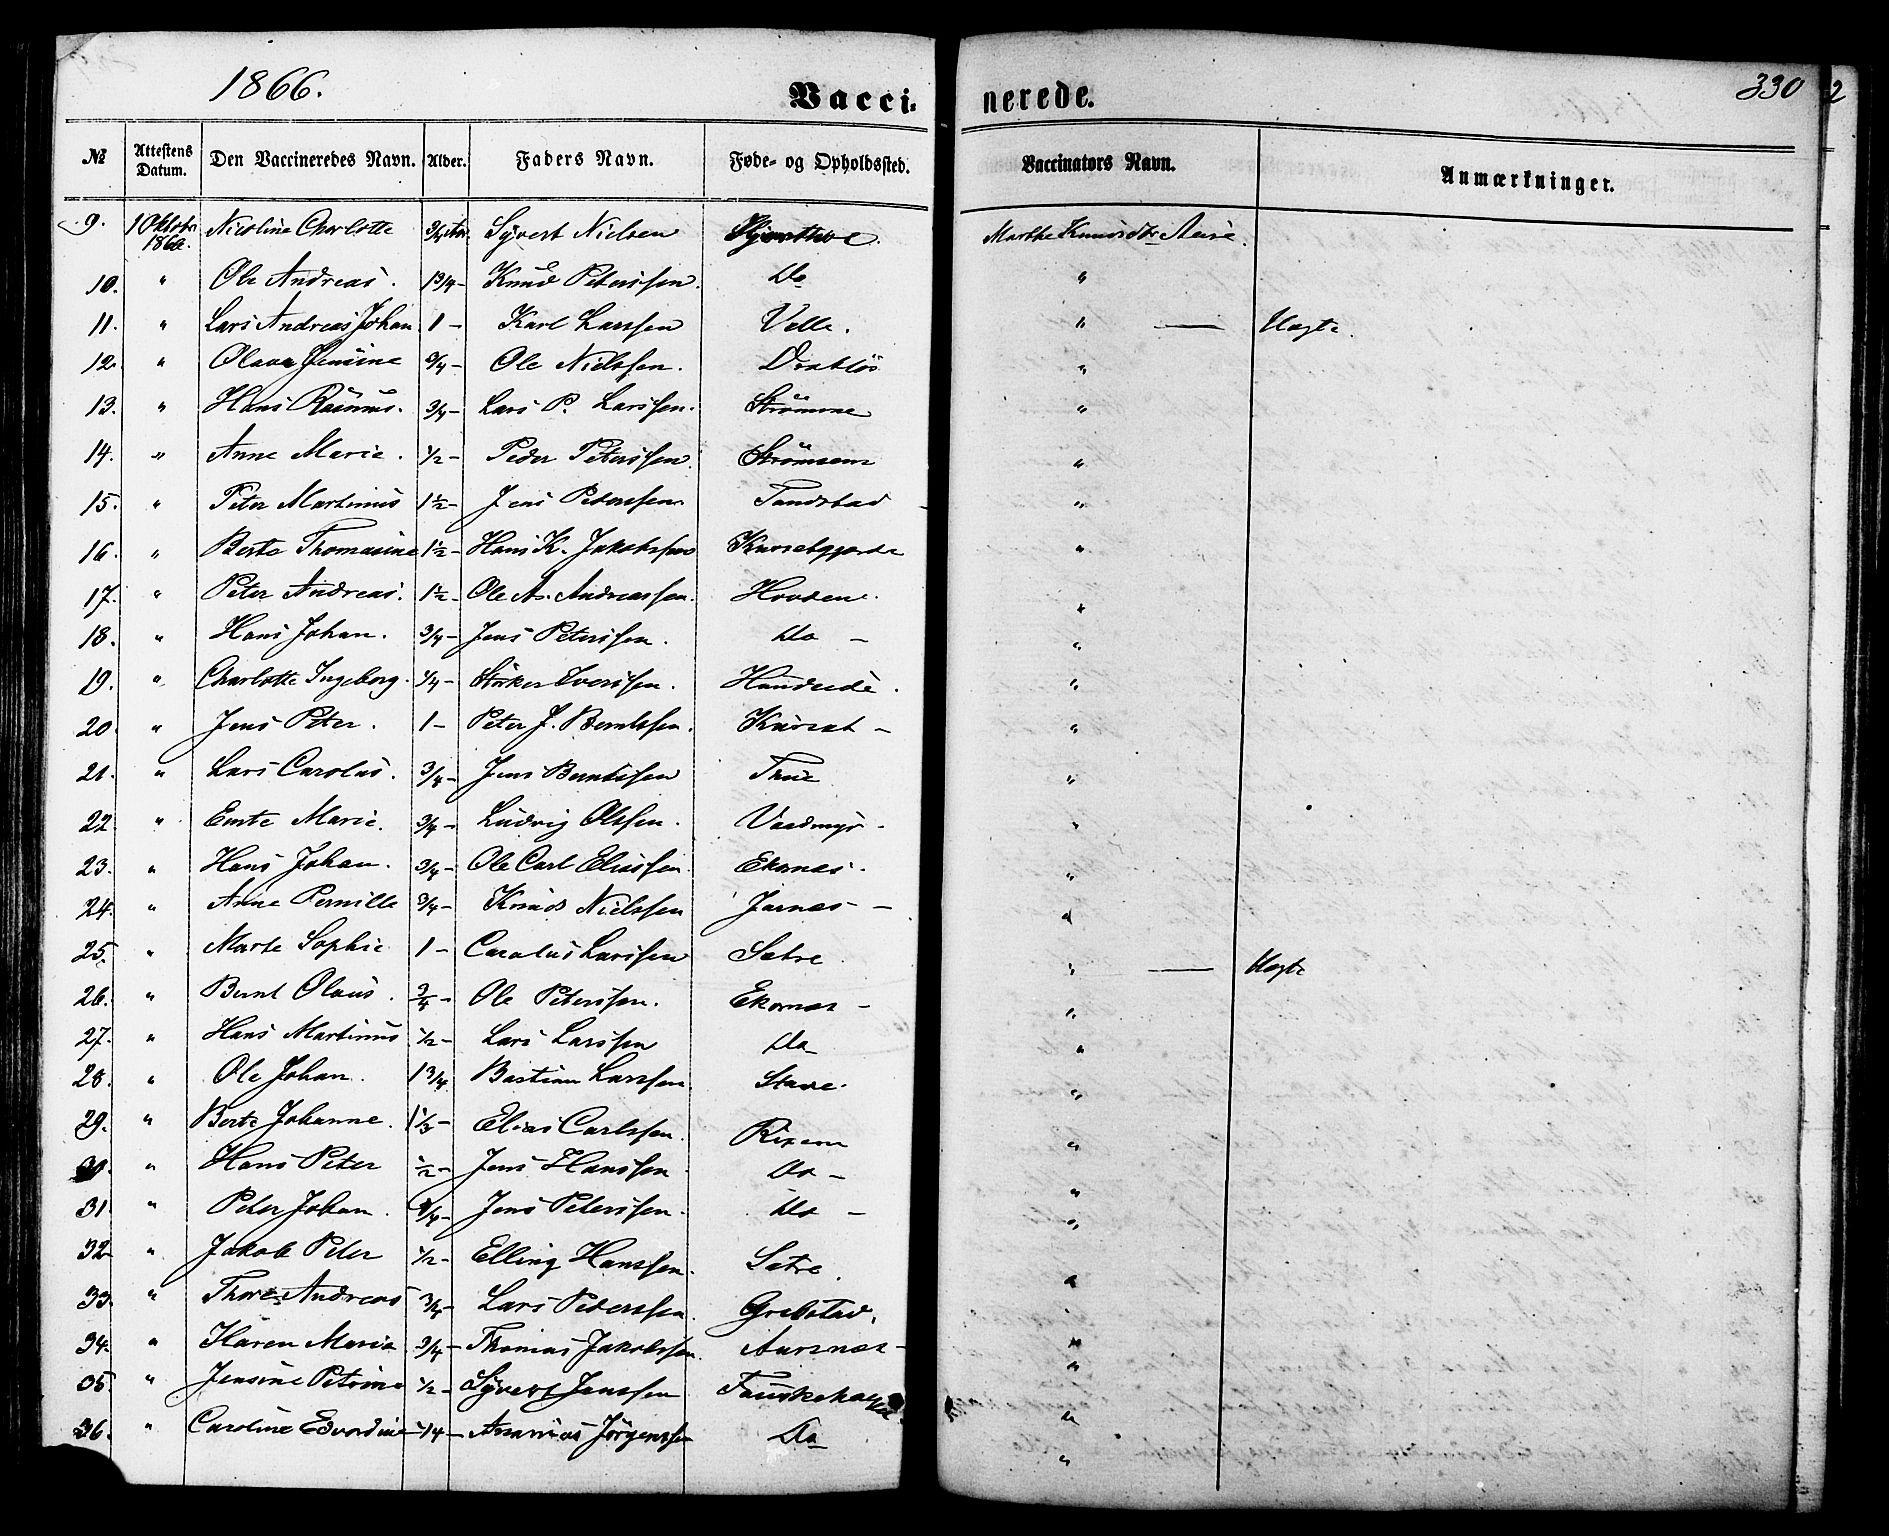 1866.
Vacci- nerede.
330
2
№ Attestens Datum. Den Vaccineredes Navn. Alder. Faders Navn. Føde- og Opholdssted. Vaccinators Navn. Anmærkninger.
9. 1 Oktobr 1866 Nicoline Charlotte 3/4 Aar. Syvert Nielsen Marthe Knudsdtr Aure.
10. " Ole Andreas. 1 3/4 - Knud Peterssen. Do "
11. " Lars Andreas Johan 1 - Karl Larssen Velle. " — Uægte.
12. " Olava Jensine 3/4 - Ole Nielssen. "
13. " Hans Rasmus. 3/4 - Lars P. Larssen. Strømme "
14. " Anne Marie. 1/2 - Peder Peterssen "
15. " Peter Martinus 1 1/2 - Jens Peterssen Tandstad "
16. " Berte Thomasine 1 1/2 - Hans K. Jakobssen "
17. " Peter Andreas. 1 1/2 - Ole A. Andreassen. Hovden. "
18. " Hans Johan. 3/4 - Jens Peterssen. Do - "
19. " Charlotte Ingeborg. 1/4 - Iverssen. Hundeide. "
20. " Jens Peter. 1 - Peter J. Berntssen. - "
21. " Lars Carolus. 3/4 - Jens Berntssen "
22. " Marie. 3/4 - Ludvig Olssen. Vaadmyr - "
23. " Hans Johan. 3/4 - Ole Carl Eliassen. Ekornes. "
24. " Anne Pernille 3/4 - Knud Nielssen Jarnes - "
25. " Marte Sophie 1 - Carolus Larssen Sætre " — Uægte
26. " Bernt Olaus. 3/4 - Ole Peterssen. Ekornes - "
27. " Hans Martinus 1/2 - Lars Larssen Do "
28. " Ole Johan. 1 3/4 Bastian Larssen. Stave. "
29. " Berte Johanne. 1 1/2 - Elias Carlssen. "
30. " Hans Peter 1/2 - Jens Hanssen Do - "
31 " Peter Johan. 3/4 - Jens Peterssen. Do - "
32 " Jakob Peter 1/2 - Elling Hanssen. Sætre. "
33. " Andreas 3/4 - Lars Pederssen. Grebstad. "
34. " Karen Maria 3/4 - Thomas Jakobssen. Aursnes - "
35. " Jensine Petrine 1/2 - Syvert Jenssen "
36. " Caroline Edvardine 1/4 - Ananias Jörgenssen Do "